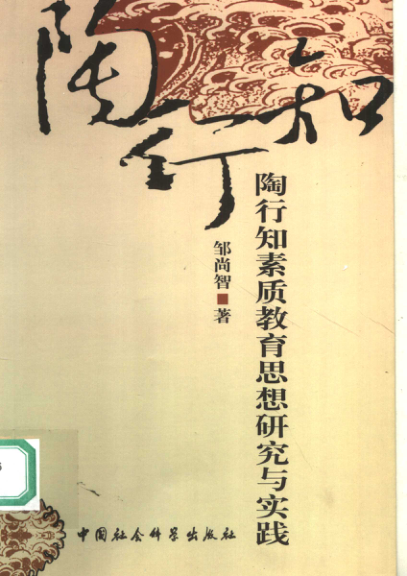 陶行知
陶行知素质教育思想研究与实践
邹尚智■著
中国社会科学出版社